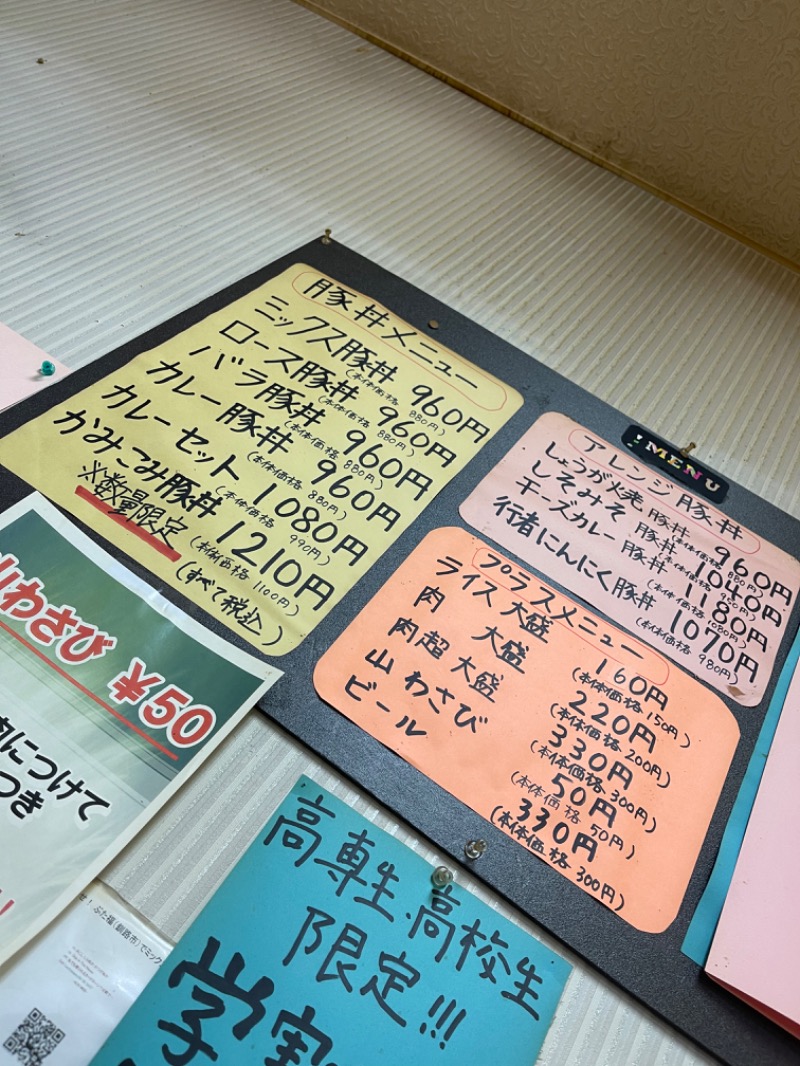 豚丼メニュー
ミックス豚丼 960円
(本体価格 880円)
ロース豚丼 960円
(本体価格 880円)
バラ豚丼 960円
(本体価格 880円)
カレー豚丼 960円
(本体価格 880円)
カレーセット 1080円
(本体価格 990円)
かみこみ豚丼 1210円
(本体価格 1100円)
※数量限定
(すべて税込)
MENU
アレンジ豚丼
しょうが焼豚丼 960円
(本体価格 880円)
しそみそ豚丼 1040円
(本体価格 950円)
チーズカレー豚丼 1180円
(本体価格 1080円)
行者にんにく豚丼 1070円
(本体価格 980円)
プラスメニュー
ライス大盛 160円
(本体価格 150円)
肉 大盛 220円
(本体価格 200円)
肉超大盛 330円
(本体価格 300円)
山わさび 50円
(本体価格 50円)
ビール 330円
(本体価格 300円)
山わさび ¥50
につけて
つき
高専生、高校生
限定!!!
学割
! ぶた福(釧路市)でミック